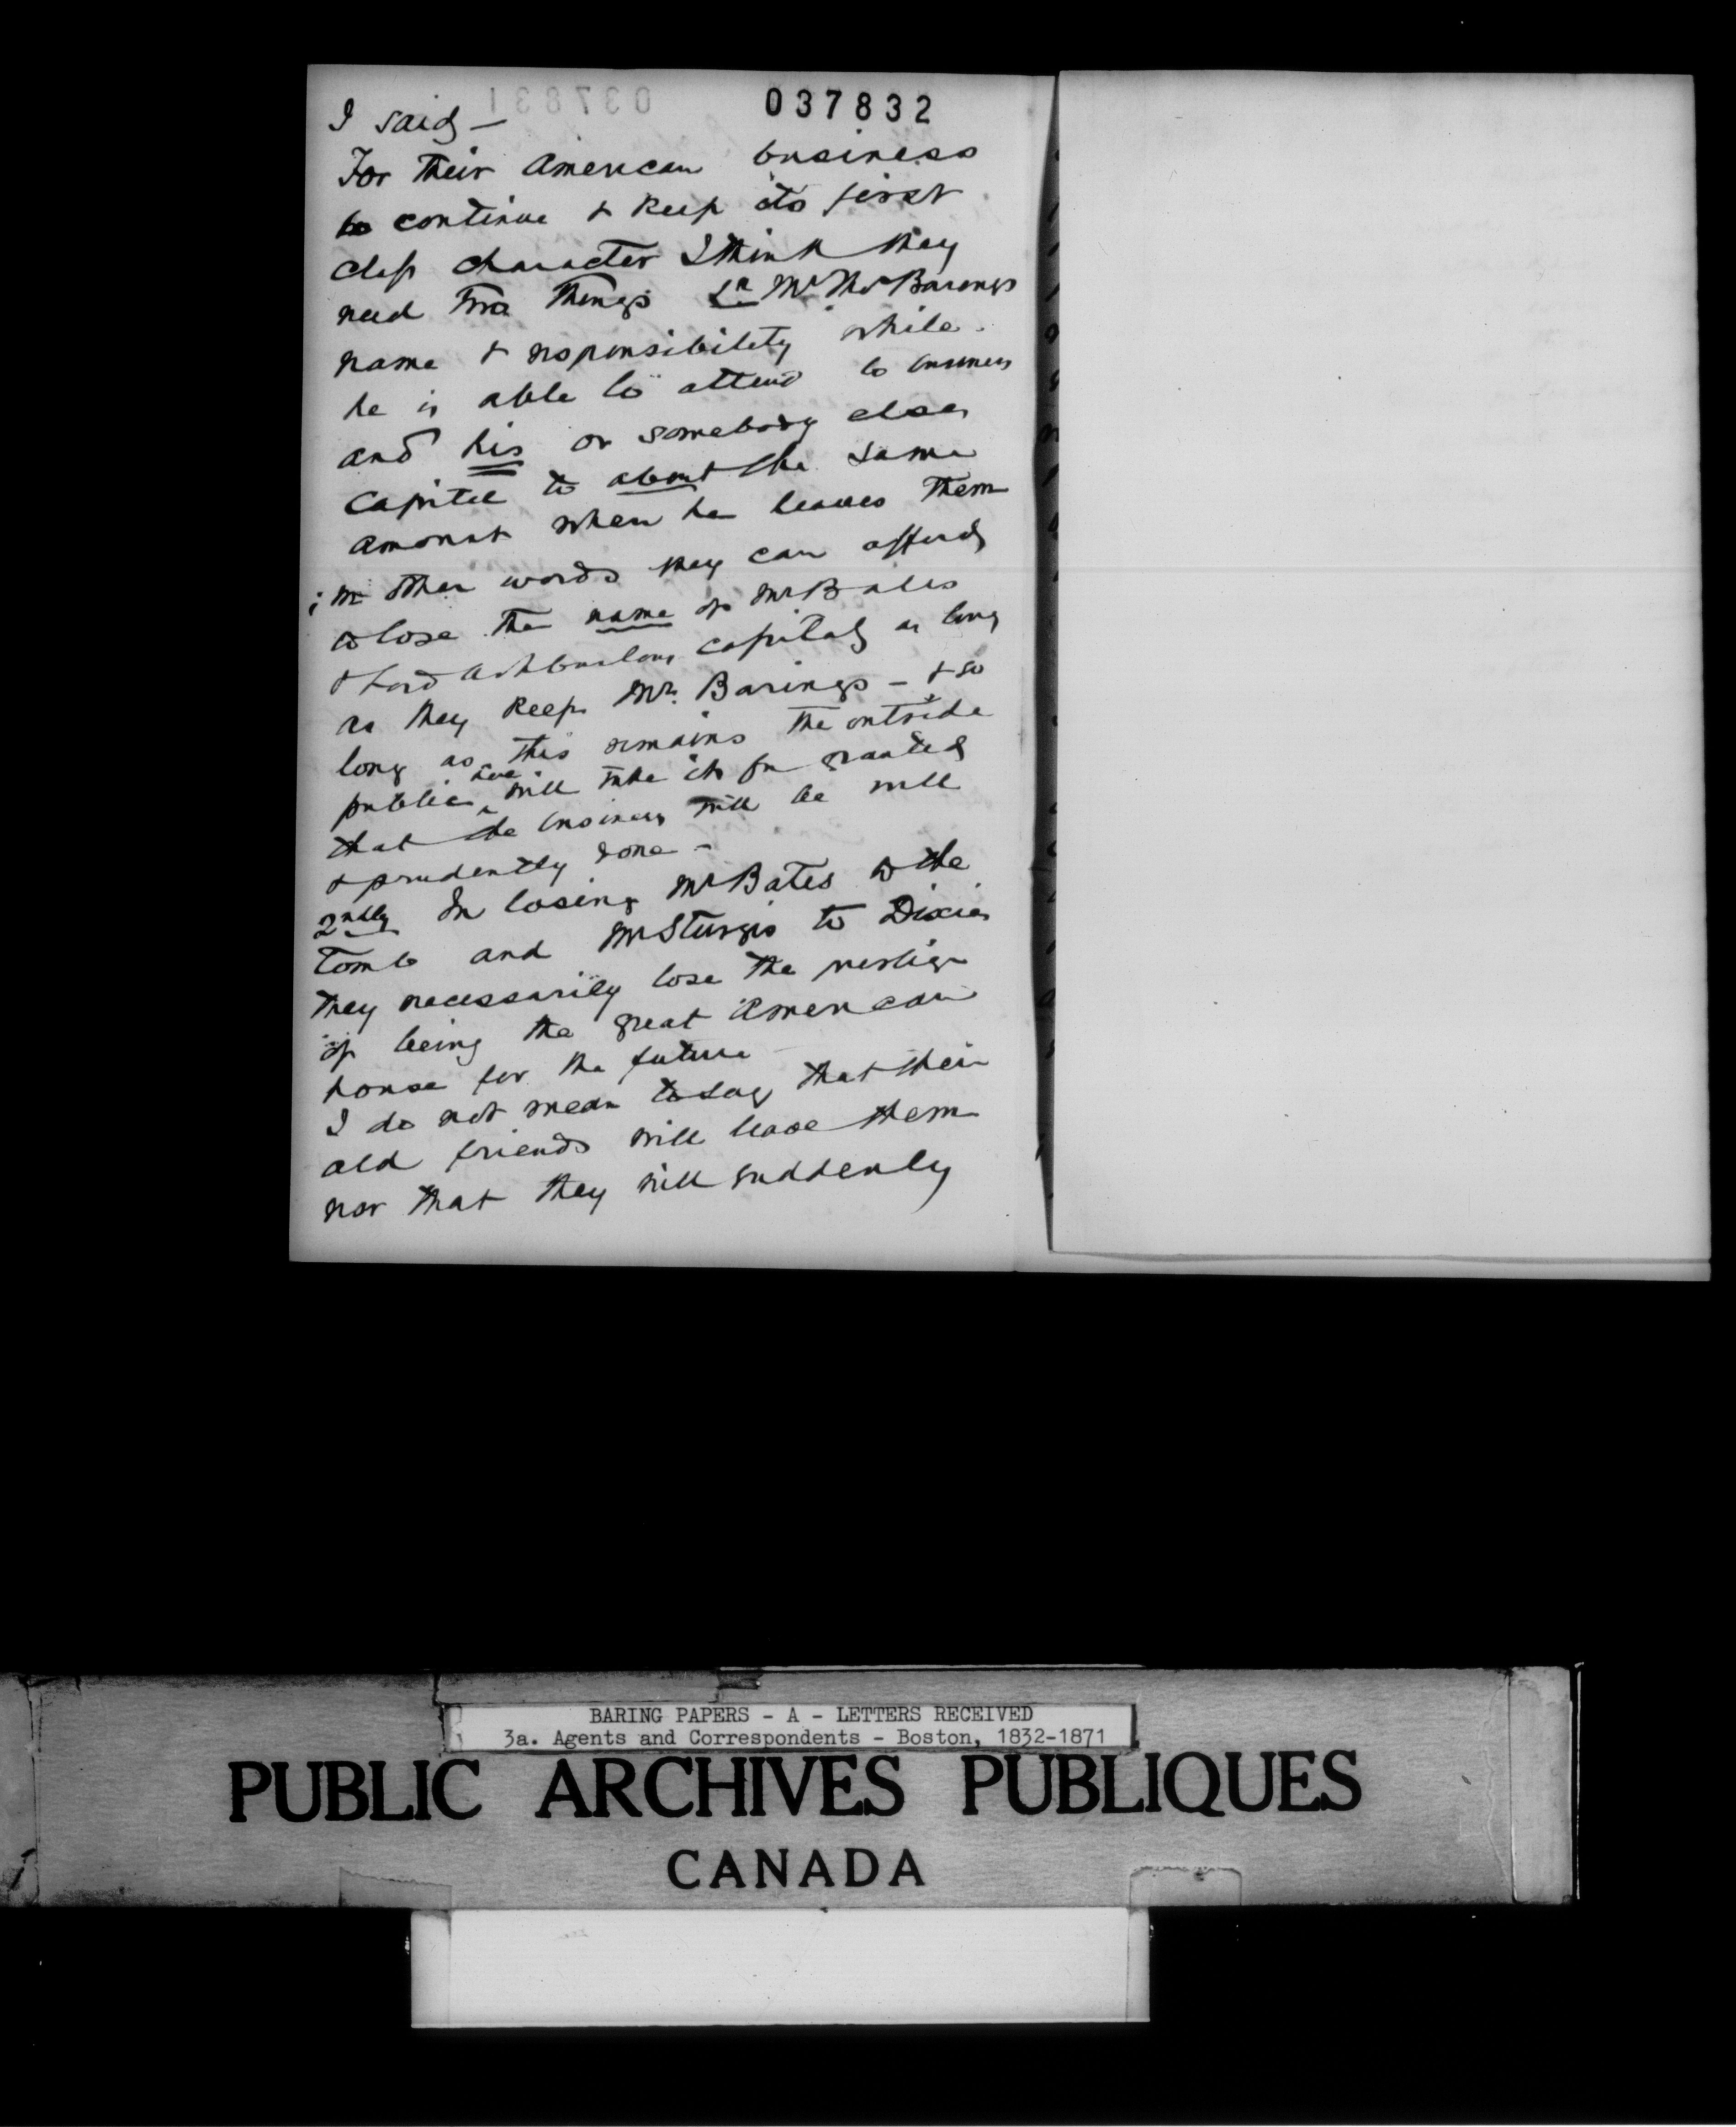 037832
I said —
For their American business
to continue & keep its first
class character I think they
need two things 1st Mr Thos Barings
name & responsibility while
he is able to attend to business
and his or somebody elses
capital to about the same
amount when he leaves them
; in other words they can afford
to lose the name of Mr Bates
& Lord Ashburtons capital as long
as they keep Mr. Barings — & so
long as this remains the outside
public here will take it for granted
that the business will be well
& prudently done —
2ndly In losing Mr Bates to the
tomb and Mr Sturgis to Dixie
they necessarily lose the prestige
of being the great American
house for the future
I do not mean to say that their
old friends will leave them
nor that they will suddenly
BARING PAPERS - A - LETTERS RECEIVED
3a. Agents and Correspondents - Boston, 1832-1871
PUBLIC ARCHIVES PUBLIQUES
CANADA